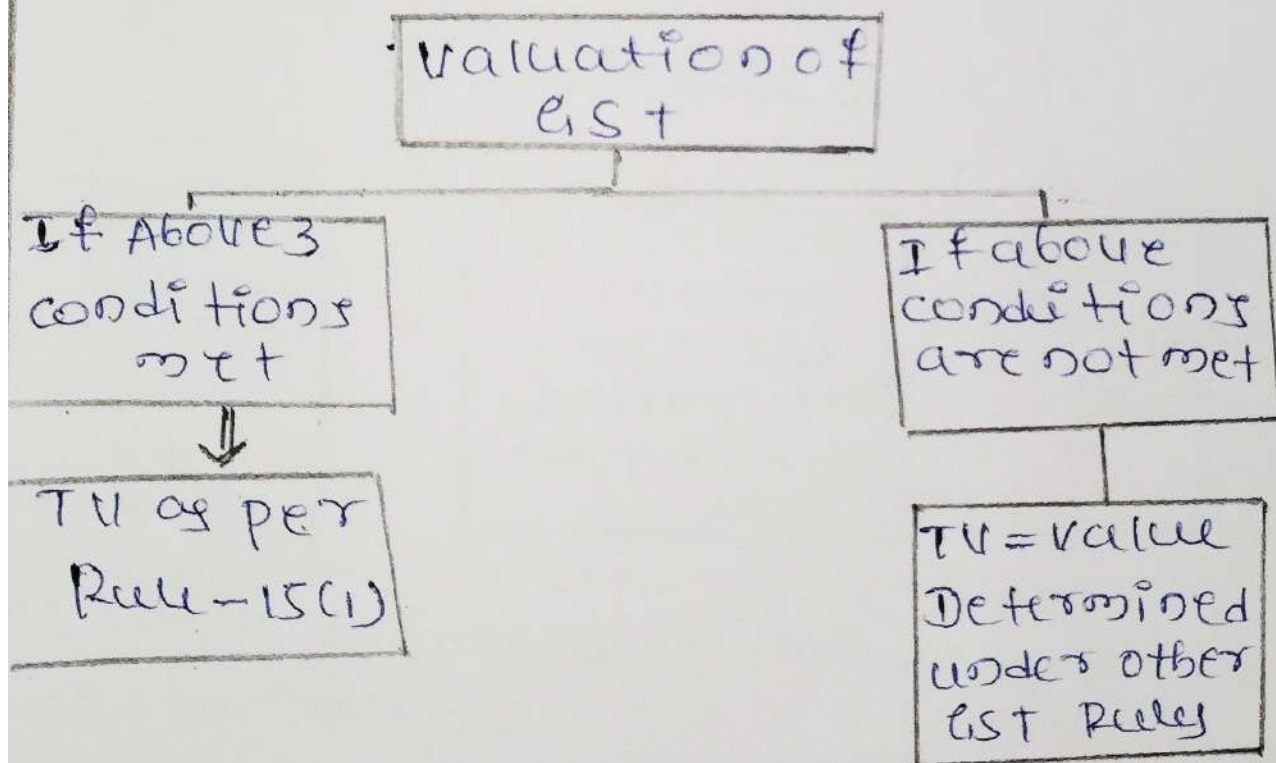 Valuation of
GST
If Above 3
conditions
met
TV as per
Rule-15(1)
If above
conditions
are not met
TV = Value
Determined
under other
GST Rules